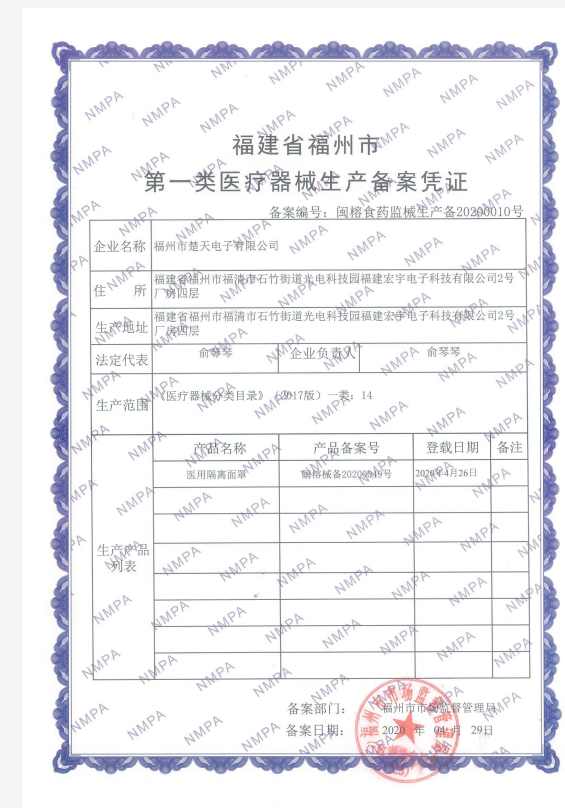 福建省福州市
第一类医疗器械生产备案凭证
备案编号：闽榕食药监械生产备20200010号
企业名称 福州市楚天电子有限公司
住 所 福建省福州市福清市石竹街道光电科技园福建宏宇电子科技有限公司2号
厂房四层
生产地址 福建省福州市福清市石竹街道光电科技园福建宏宇电子科技有限公司2号
厂房四层
法定代表 俞琴琴 企业负责人 俞琴琴
生产范围 《医疗器械分类目录》（2017版）一类：14
生产产品
列表
产品名称 产品备案号 登载日期 备注
医用隔离面罩 闽榕械备20200049号 2020年4月26日
备案部门： 福州市市场监督管理局
备案日期： 2020 年 04 月 29日
NMPA